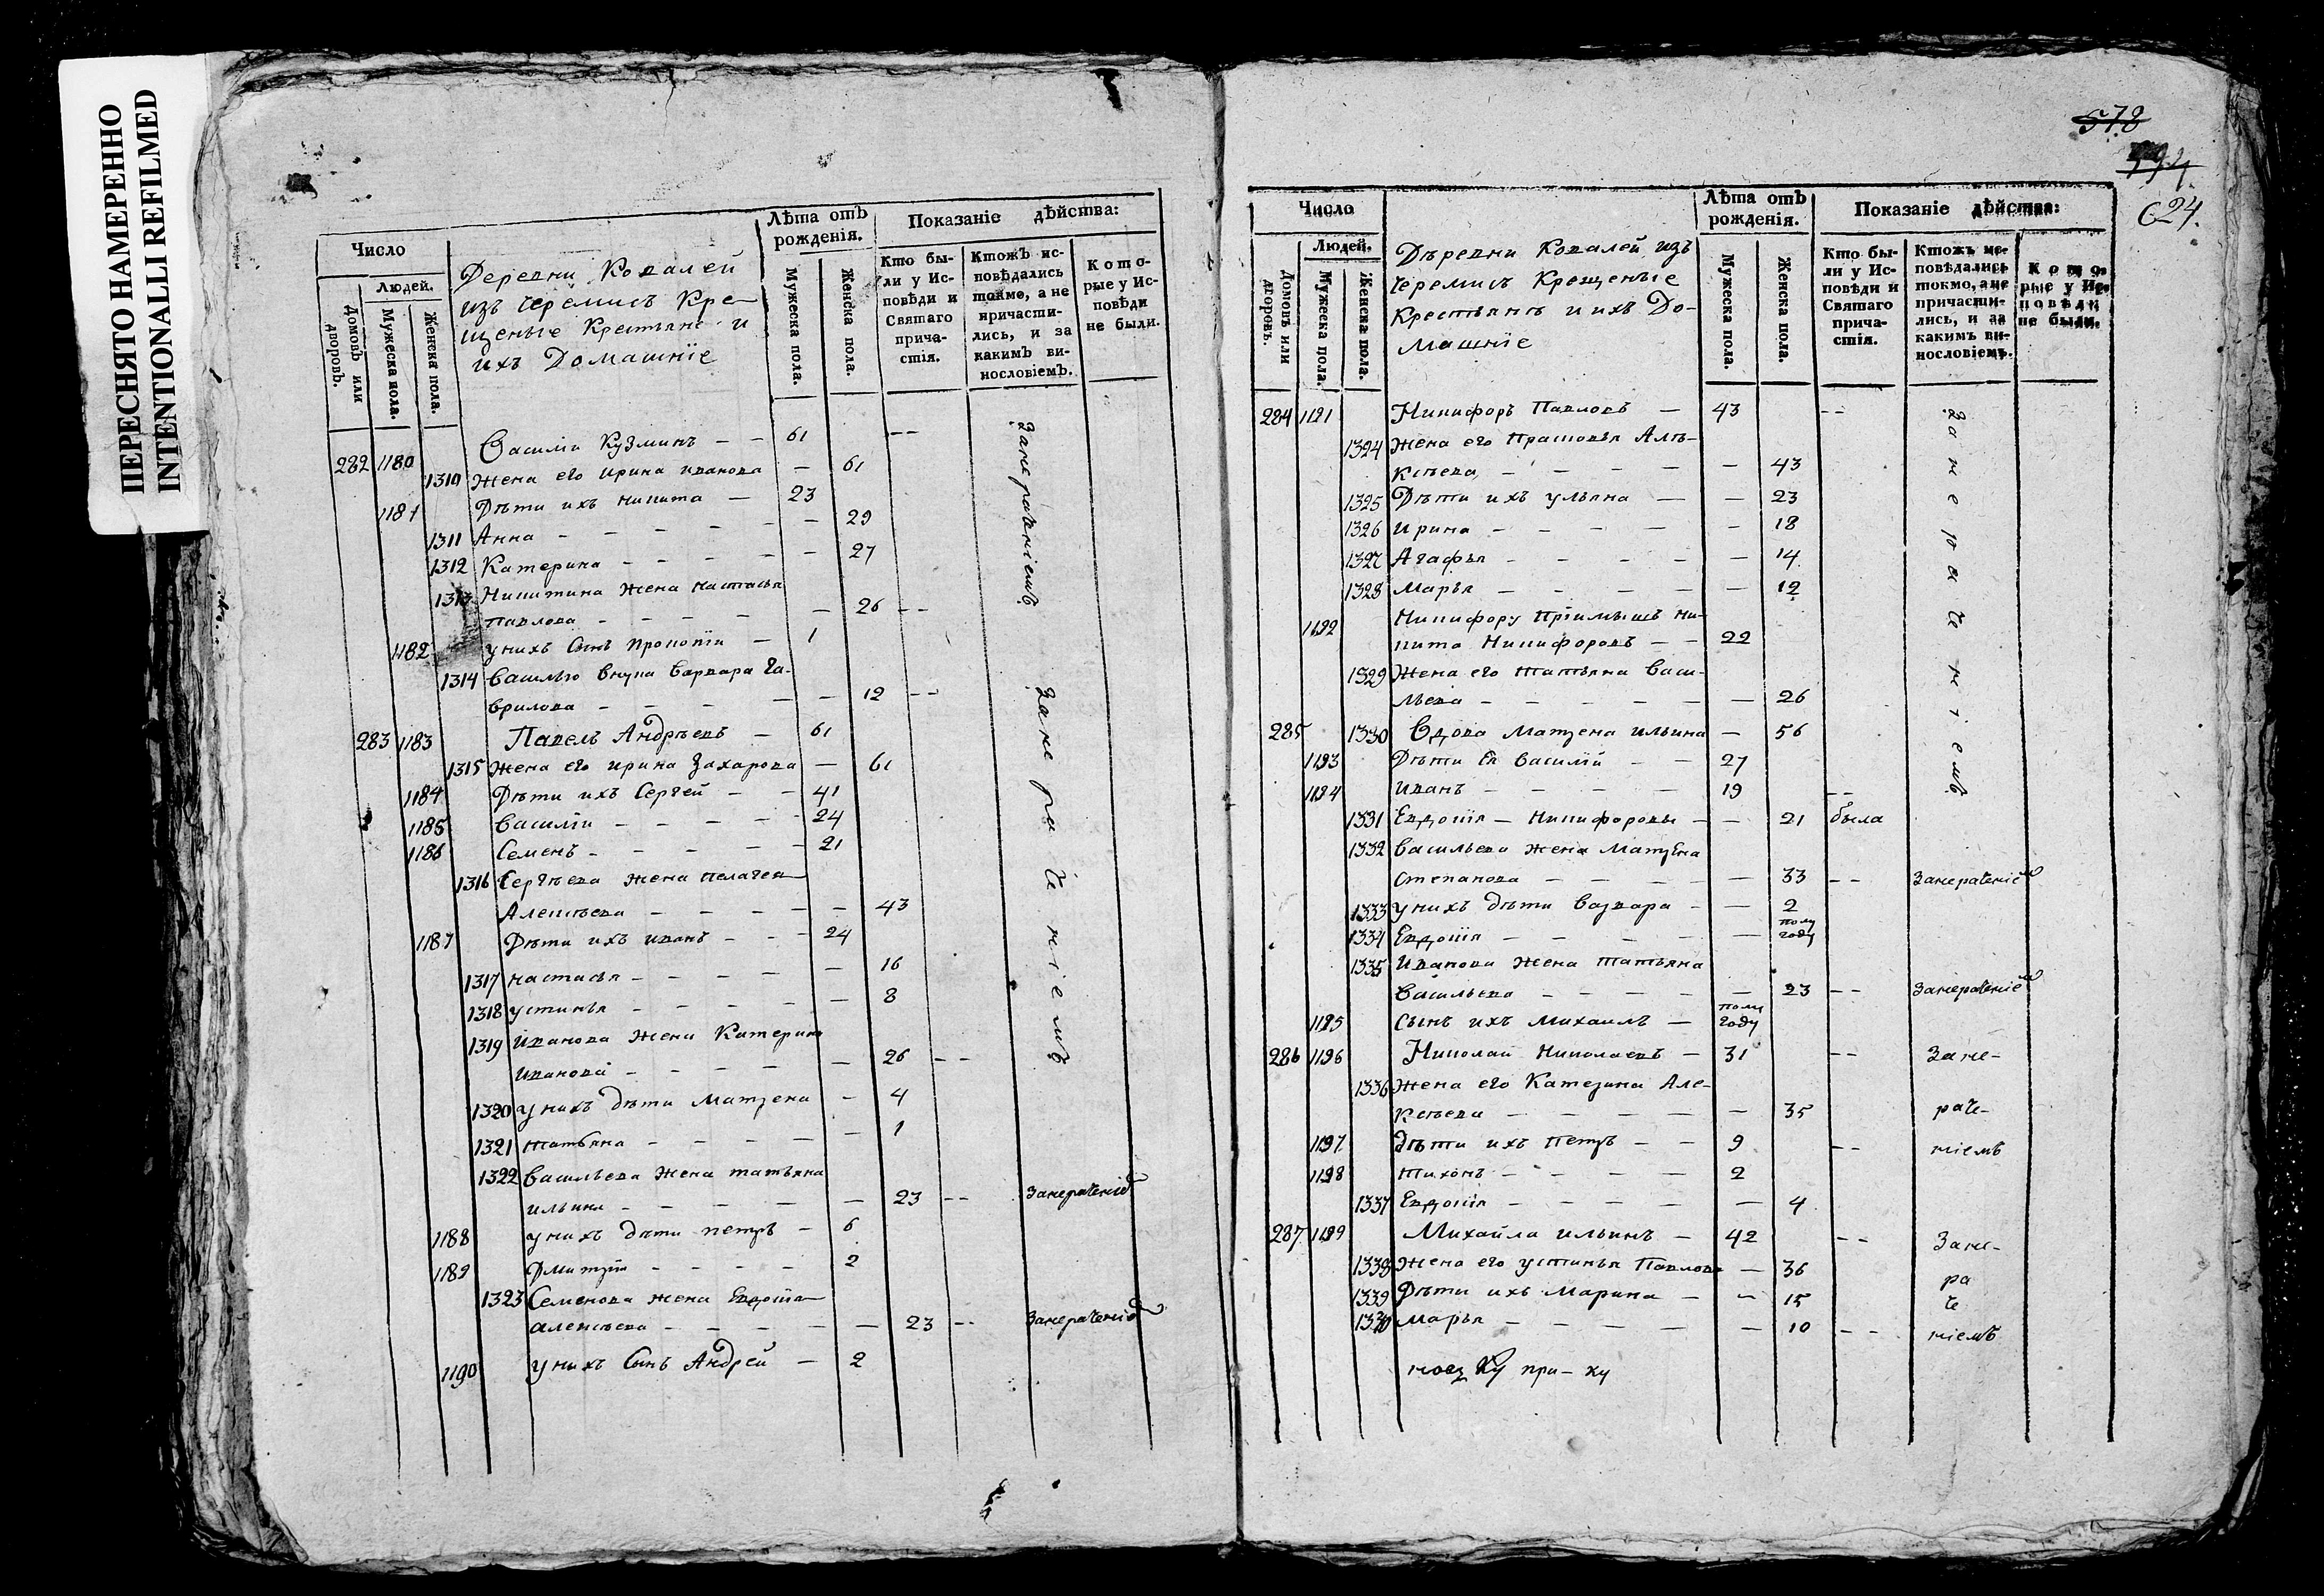 ПЕРЕСНЯТО НАМЕРЕННО
INTENTIONALLI REFILMED
Число
Людей.
Домовъ или дворовъ.
Мужеска пола.
Женска пола.
Деревни Ковалей
изъ черемисъ Кре-
щеные Крестьяне и
ихъ Домашніе
Лѣта отъ рожденія.
Мужеска пола.
Женска пола.
Показаніе дѣйства:
Кто бы-
ли у Ис-
повѣди и
Святаго
прича-
стія.
Ктожъ ис-
повѣдались
токмо, а не
причасти-
лись, и за
какимъ ви-
нословіемъ.
Кото-
рые у Ис-
повѣди
не были.
282 1180 Василіи Кузминъ — — 61 --
1310 Жена его ирина иванова — 61
1181 Дѣти ихъ никита — 23
1311 Анна — — — — — 29
1312 Катерина — — — — — 27
1313 Никитина Жена настасья
павлова — — — — — 26 --
1182 у нихъ Сынъ прокопіи — 1
1314 Василью внука варвара га-
врилова — — — — — 12 --
занераченіемъ
283 1183 Павелъ Андрѣевъ — 61
1315 Жена его ирина Захарова — 61
1184 Дѣти ихъ Сергей — — 41
1185 василіи — — — — 24
1186 Семенъ — — — — — 21
1316 Сергѣева жена пелагея
Алексѣева — — — — — 43
1187 Дѣти ихъ иванъ — — — 24
1317 настасья — — — — — 16
1318 устинья — — — — — 8
1319 иванова Жена Катерина
иванова — — — — — 26 --
занераченіемъ
1320 у нихъ дѣти матрена — 4
1321 татьяна — — — — — 1
1322 васильева Жена татьяна
ильина — — — — — 23 -- занераченіе
1188 у нихъ дѣти петръ — 6
1189 Дмитріи — — — — 2
1323 Семенова жена Евдокія
алексѣева — — — — — 23 -- занераченіе
1190 у нихъ Сынъ Андрей — 2
578
624.
Число
Людей.
Домовъ или дворовъ.
Мужеска пола.
Женска пола.
Дѣревни Ковалей изъ
черемисъ Крещеные
Крестьянѣ и ихъ До-
машніе
Лѣта отъ рожденія.
Мужеска пола.
Женска пола.
Показаніе дѣйства:
Кто бы-
ли у Ис-
повѣди и
Святаго
прича-
стія.
Ктожъ ис-
повѣдались
токмо, а не
причасти-
лись, и за
какимъ ви-
нословіемъ.
Кото-
рые у Ис-
повѣди
не были.
284 1191 Никифоръ Павловъ — 43 --
1324 Жена его Прасковья Але-
ксѣева — — — — — 43
1325 Дѣти ихъ ульяна — — 23
1326 ирина — — — — — 18
1327 Агафья — — — — — 14
1328 марья — — — — — 12
1192 Никифору Пріимышъ ни-
кита Никифоровъ — — 22
1329 Жена его татьяна васи-
льева — — — — — — 26
285 1330 Вдова Матрена ильина — 56
1193 Дѣти Ея василій — — 27
1194 иванъ — — — — 19 --
занераченіемъ
1331 Евдокія — Никифоровы — — 21 была
1332 васильева жена Матрена
степанова — — — — — 33 -- занераченіе
1333 у нихъ дѣти варвара — — 2
1334 Евдокія — — — — — полу году
1335 иванова жена татьяна
васильева — — — — — 23 -- занераченіе
1195 Сынъ ихъ михаилъ — полу году
286 1196 Николай Николаевъ — 31 -- зане-
1336 Жена его Катерина Але-
ксѣева — — — — — 35 раче-
1197 дѣти ихъ петръ — — 9 -- ніемъ
1198 тихонъ — — — — 2
1337 Евдокія — — — — — 4
287 1199 Михайла ильинъ — 42 -- зане-
1338 Жена его устинья Павлова — 36
1339 Дѣти ихъ Марина — — 15 ра
че
1340 марья — — — — — 10 -- ніемъ